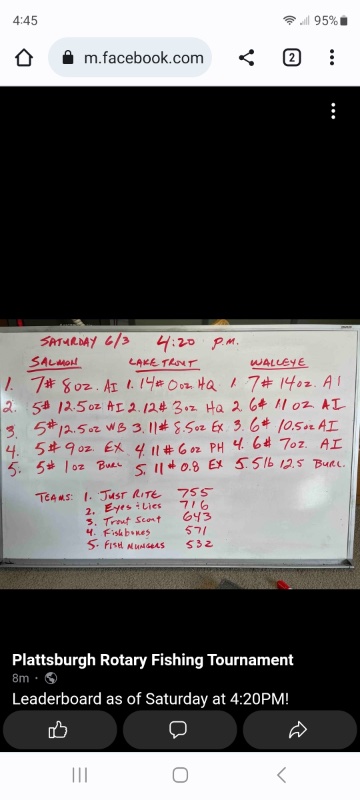 4:45
95%
m.facebook.com
2
SATURDAY 6/3 4:20 P.M.
SALMON LAKE TROUT WALLEYE
1. 7# 8oz. AI 1. 14# 0oz HQ 1. 7# 14oz. AI
2. 5# 12.5oz AI 2. 12# 3oz HQ 2. 6# 11oz. AI
3. 5# 12.5oz WB 3. 11# 8.5oz EX 3. 6# 10.5oz AI
4. 5# 9oz. EX 4. 11# 6oz PH 4. 6# 7oz. AI
5. 5# 1oz BURL 5. 11# 0.8 EX 5. 5lb 12.5 BURL.
TEAMS: 1. JUST RITE 755
2. Eyes & Lies 716
3. Trout Scout 643
4. Fishbones 571
5. FISH MUNGERS 532
Plattsburgh Rotary Fishing Tournament
8m ·
Leaderboard as of Saturday at 4:20PM!